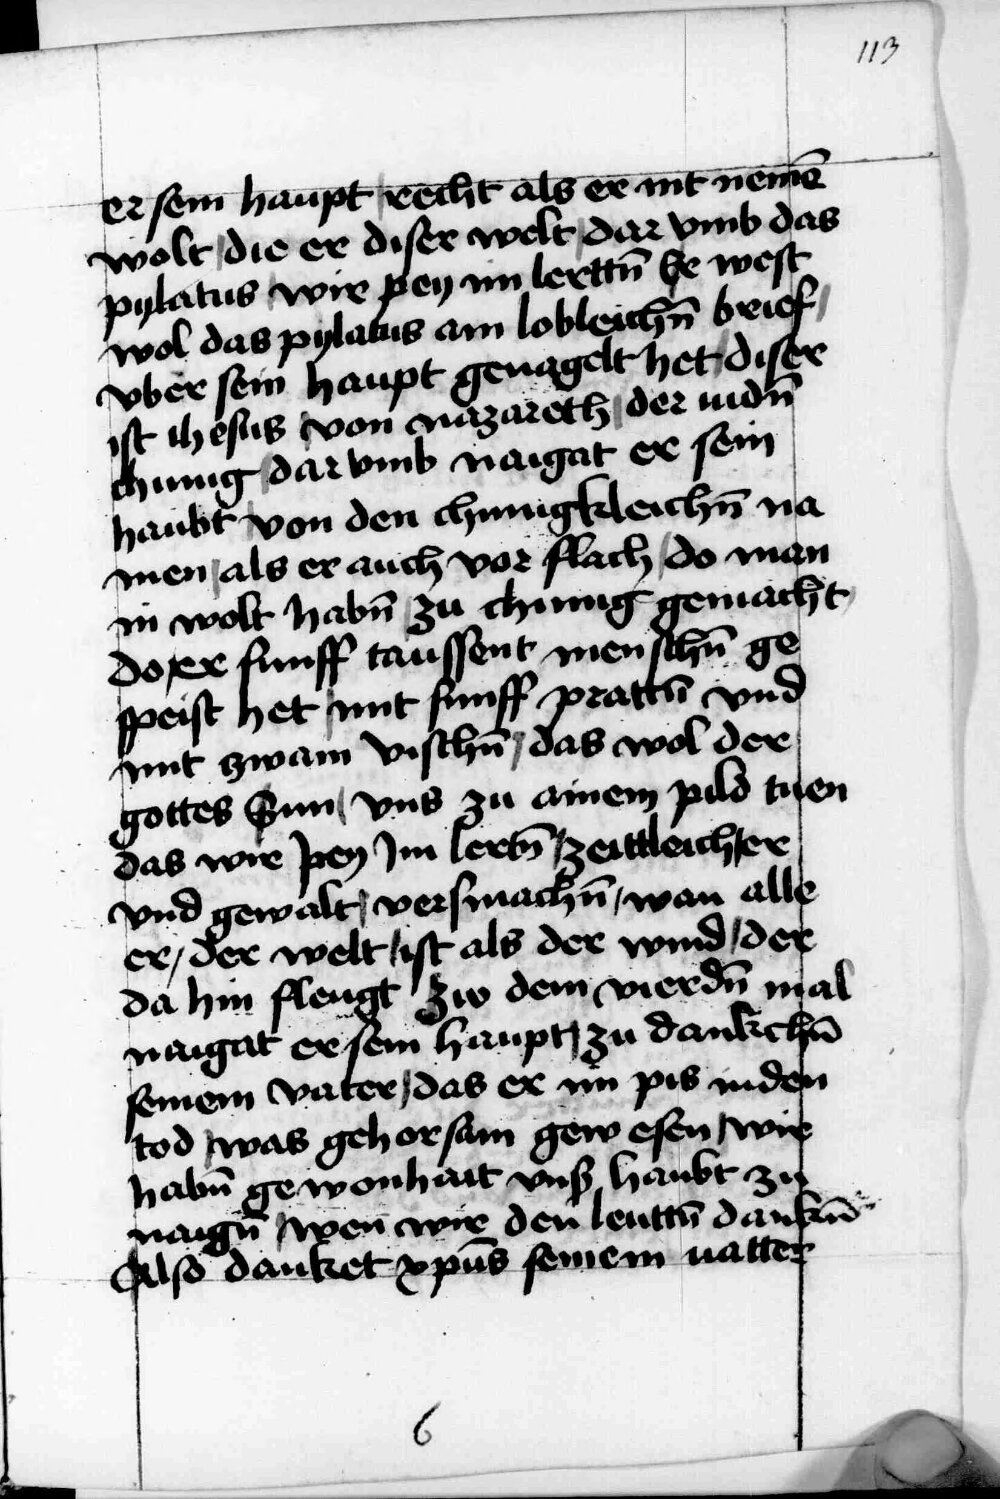 113
er sein haupt recht als er nit nemē
wolt die er diser welt dar vmb das
pylatus wir pey im lerttn̄ Er west
wol das pylatus am lobleichn̄ brief
vber sein haupt genagelt het diser
ist ihesus von nazareth der iudn̄
chunig dar vmb naigat er sein
haubt von den chunigkleichn̄ na
men als er auch vor flach do man
in wolt habn̄ zu chunig gemacht
do er funff taussent menschn̄ ge
speist het mit funff prattn̄ vnd
mit zwain vischn̄ das wol der
gottes Sun vns zu ainem pild tuen
das wir pey Im lertn̄ zeittleich er
vnd gewalt versmachn̄ wan alle
er der welt ist als der wind der
da hin fleugt Zw dem vierdn̄ mal
naigat er sein haupt zu dankchn̄
seinem vater das er im pis in den
tod was gehorsam gewesen wir
habn̄ gewonhait vnß haubt zu
naign̄ wen wir den leuttn̄ dankn̄
Also danket xp̄us seinem vatter
6